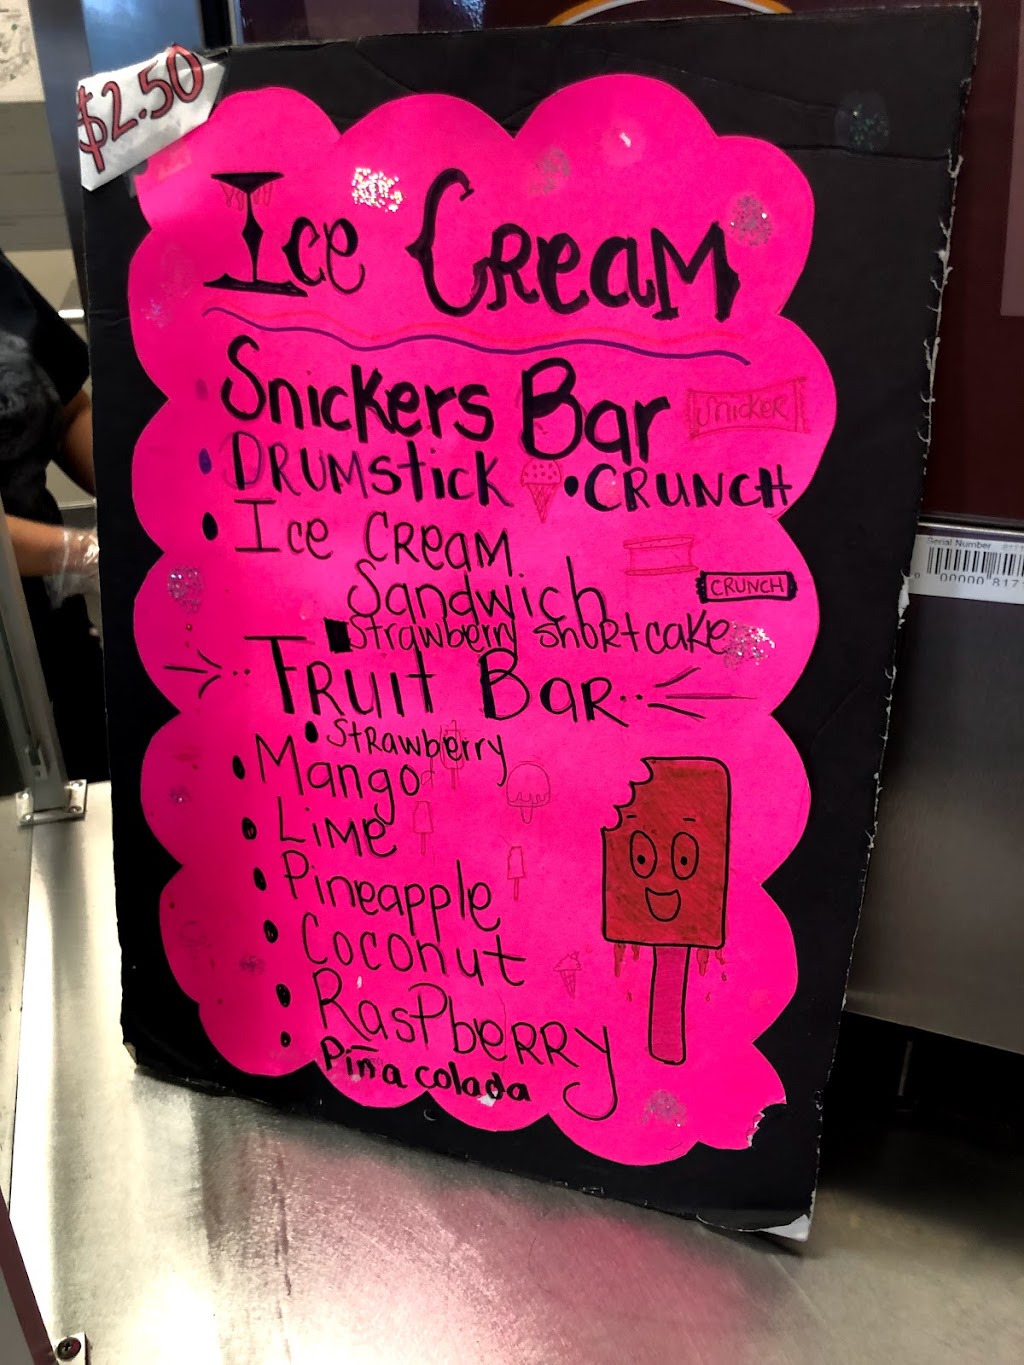 $2.50
Ice Cream
Snickers Bar
Snicker
• Drumstick • Crunch
• Ice Cream
Sandwich
CRUNCH
Strawberry shortcake
Fruit Bar
• Strawberry
• Mango
• Lime
• Pineapple
• Coconut
• Raspberry
• Piña colada
Serial Number
00000 817